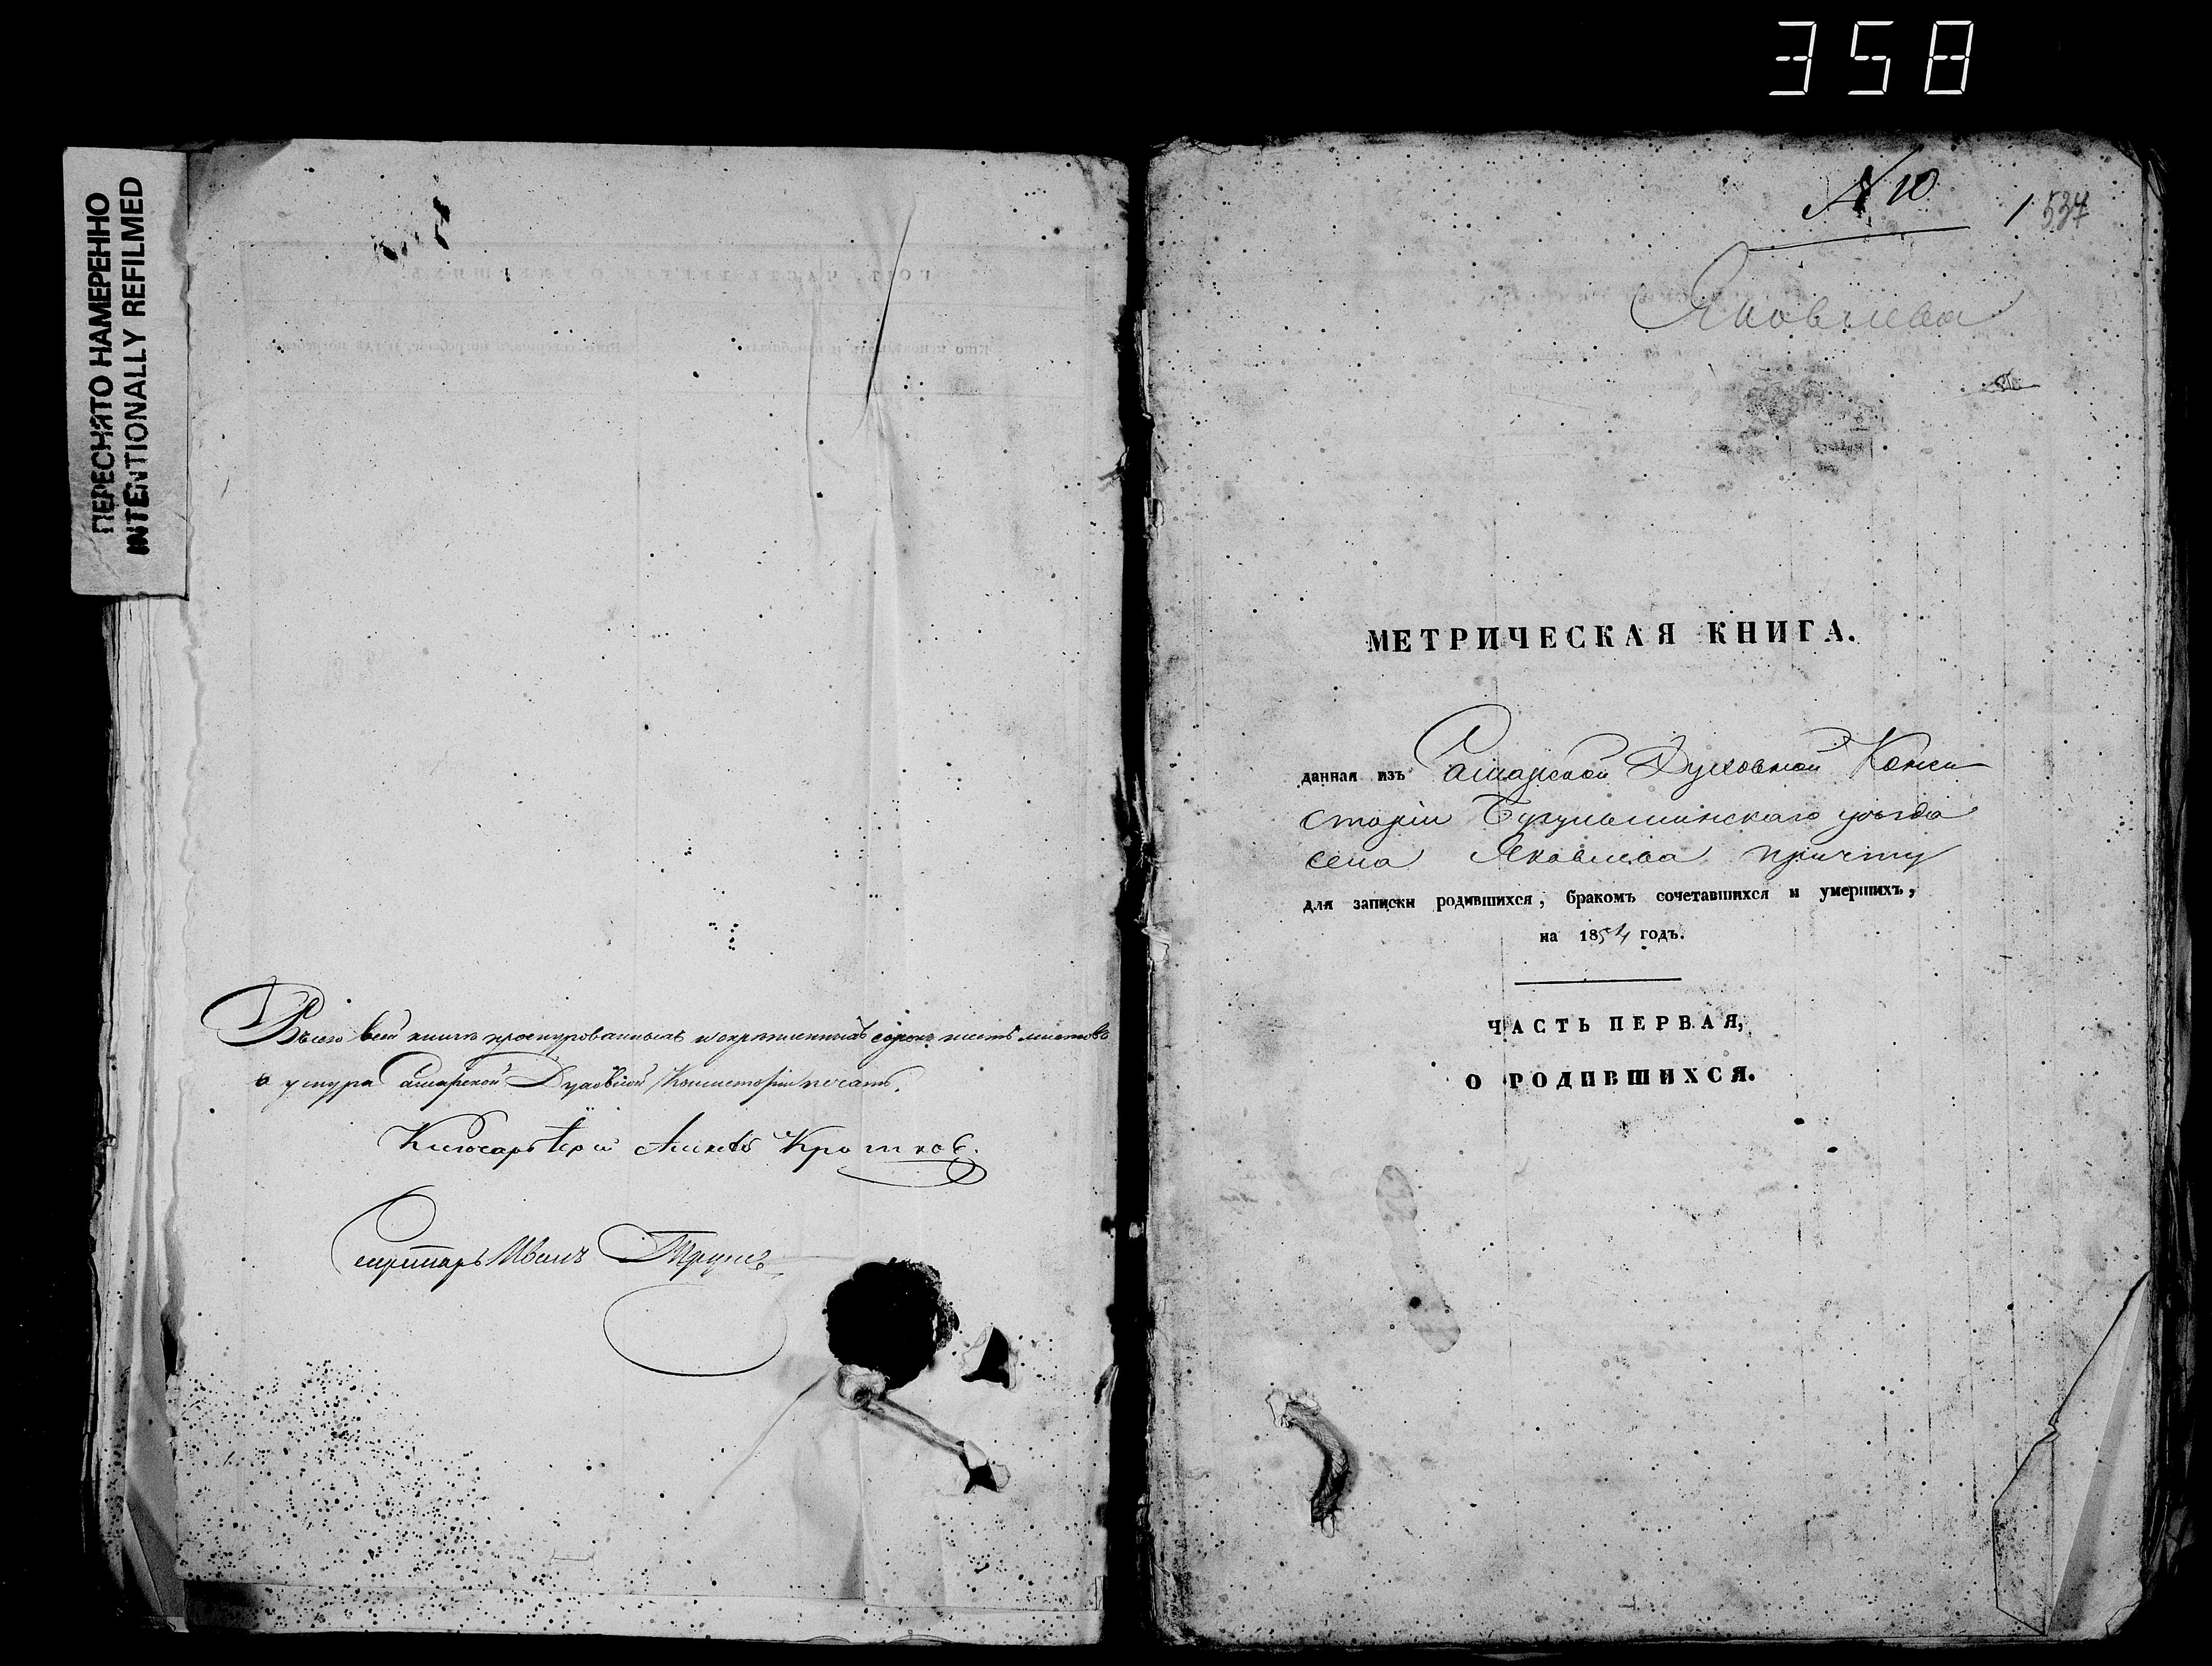 358
ПЕРЕСНЯТО НАМЕРЕННО
INTENTIONALLY REFILMED
Всего в сей книгѣ прошнурованныхъ и скрѣпленныхъ сорокъ шесть листовъ
а у шнура Самарской Духовной Консисторіи печать.
Ключарь Іерей Кротков.
Секретарь Иванъ
N 10
1 537
Яковлева
МЕТРИЧЕСКАЯ КНИГА.
данная изъ Самарской Духовной Конси
сторіи Бугульминскаго уѣзда
села Яковлева причту
для записки родившихся, бракомъ сочетавшихся и умершихъ,
на 1854 годъ.
ЧАСТЬ ПЕРВАЯ,
О РОДИВШИХСЯ.